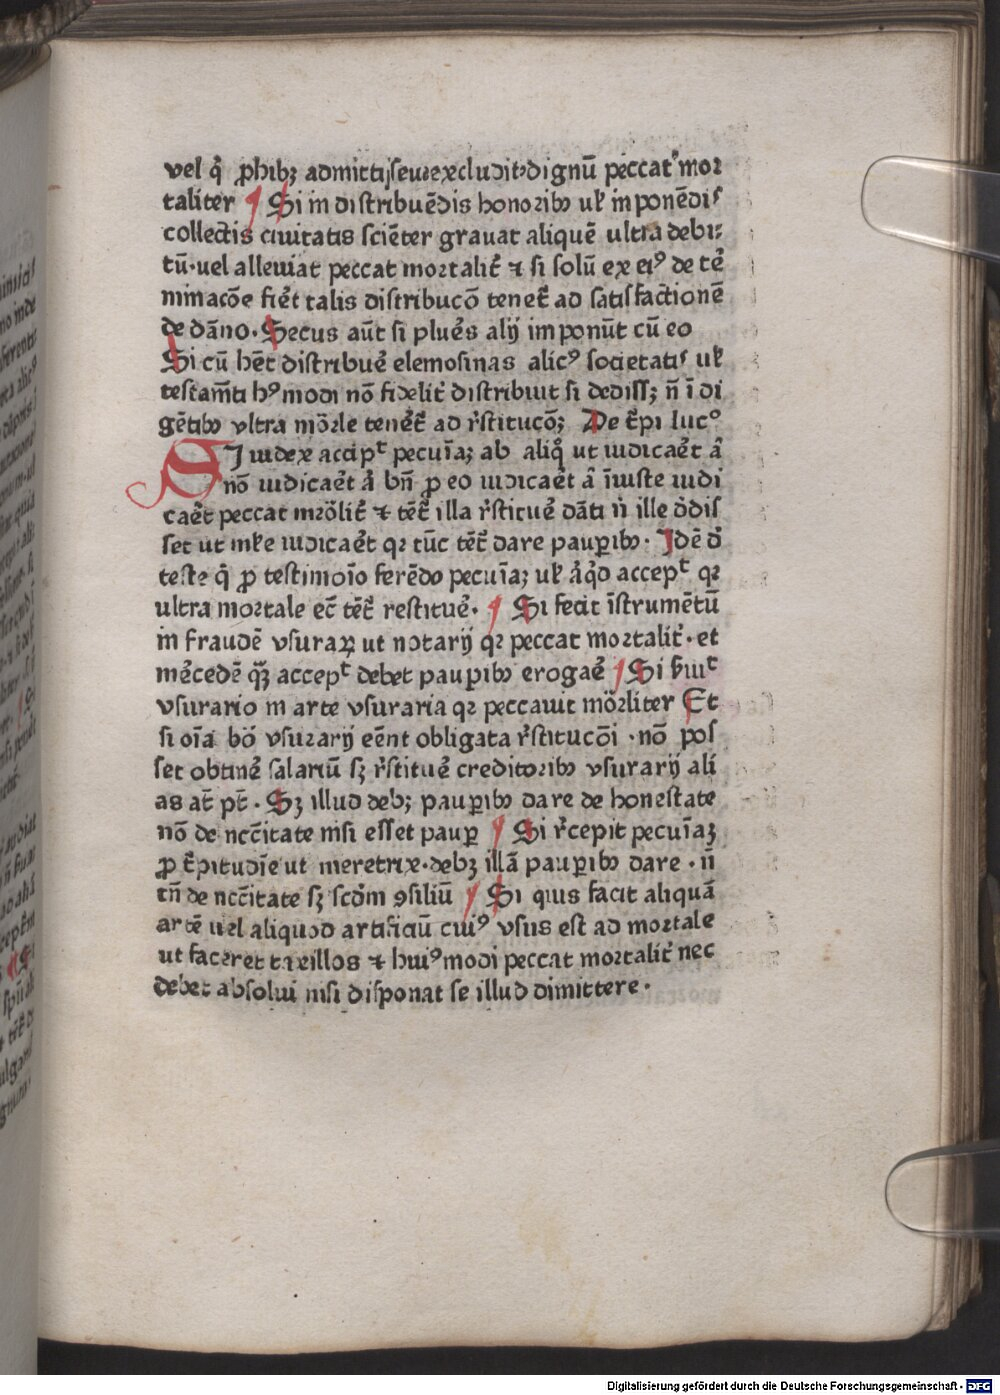 vel q̃ ꝓhibꝫ admitti seu excludit dignũ peccat mor
taliter ¶ Si in distribuẽdis honoribꝰ ul̃ imponẽdis
collectis ciuitatis sciẽter grauat aliquẽ ultra debi⸗
tũ·uel alleuiat peccat mortalit̃ ⁊ si solũ ex eiꝰ de te᷑
minacõe fie᷑t talis distribucõ tenet᷑ ad satisfactionẽ
de dãno· Secus aũt si plue᷑s alij imponũt cũ eo
Si cũ hẽt distribue᷑ elemosinas alicꝰ societatis ul̃
testam̃ti hꝰmodi nõ fidelit᷑ distribuit si dedissꝫ ñ ĩdi
gẽtibꝰ vltra mõrle tene᷑t᷑ ad r᷑stitucõꝫ De t᷑pi lucꝰ
SI iudex accipᵗ pecuĩaꝫ ab aliq̃ ut iudicae᷑t ã
nõ iudicae᷑t ã bñ ꝓ eo iudicae᷑t ã ĩiuste iudi
cae᷑t peccat mrõlit᷑ ⁊ tẽt᷑ illa r᷑stitue᷑ dãti ñ ille dedis
set ut male iudicae᷑t qꝛ tũc tẽt᷑ dare pauꝑibꝰ· Idẽ d᷑
teste q̃ ꝓ testimoĩo ferẽdo pecuĩaꝫ ul̃ ãq̃d accepᵗ qꝛ
ultra mortale ec̃ tẽt᷑ restitue᷑· ¶ Si fecit ĩstrumẽtũ
in fraudẽ vsuraꝝ ut notarij qꝛ peccat mortalit᷑·et
me᷑cedẽ q̃ꝫ accepᵗ debet pauꝑibꝰ erogae᷑ ¶ Si s᷑uiᵗ
vsurario in arte vsuraria qꝛ peccauit mõrliter Et
si oĩa bõ vsurarij eẽnt obligata r᷑stitucõi ·nõ pos
set obtine᷑ salariũ sꝫ r᷑stitue᷑ creditoribꝰ vsurarij ali
as at̃ pt̃· Sꝫ illud debꝫ pauꝑibꝰ dare de honestate
nõ de nccĩtate nisi esset pauꝑ ¶ Si r᷑cepit pecuĩaꝫ
ꝓ t᷑pitudĩe ut meretrix·debꝫ illã pauꝑibꝰ dare ·ñ
tñ de nccĩtate sꝫ scd̃m ꝯsiliũ ¶ Si quis facit aliquã
artẽ uel aliquod artificiũ cuiꝰ vsus est ad mortale
ut faceret taxillos ⁊ huiꝰmodi peccat mortalit᷑ nec
debet absolui nisi disponat se illud dimittere·
Digitalisierung gefördert durch die Deutsche Forschungsgemeinschaft - DFG